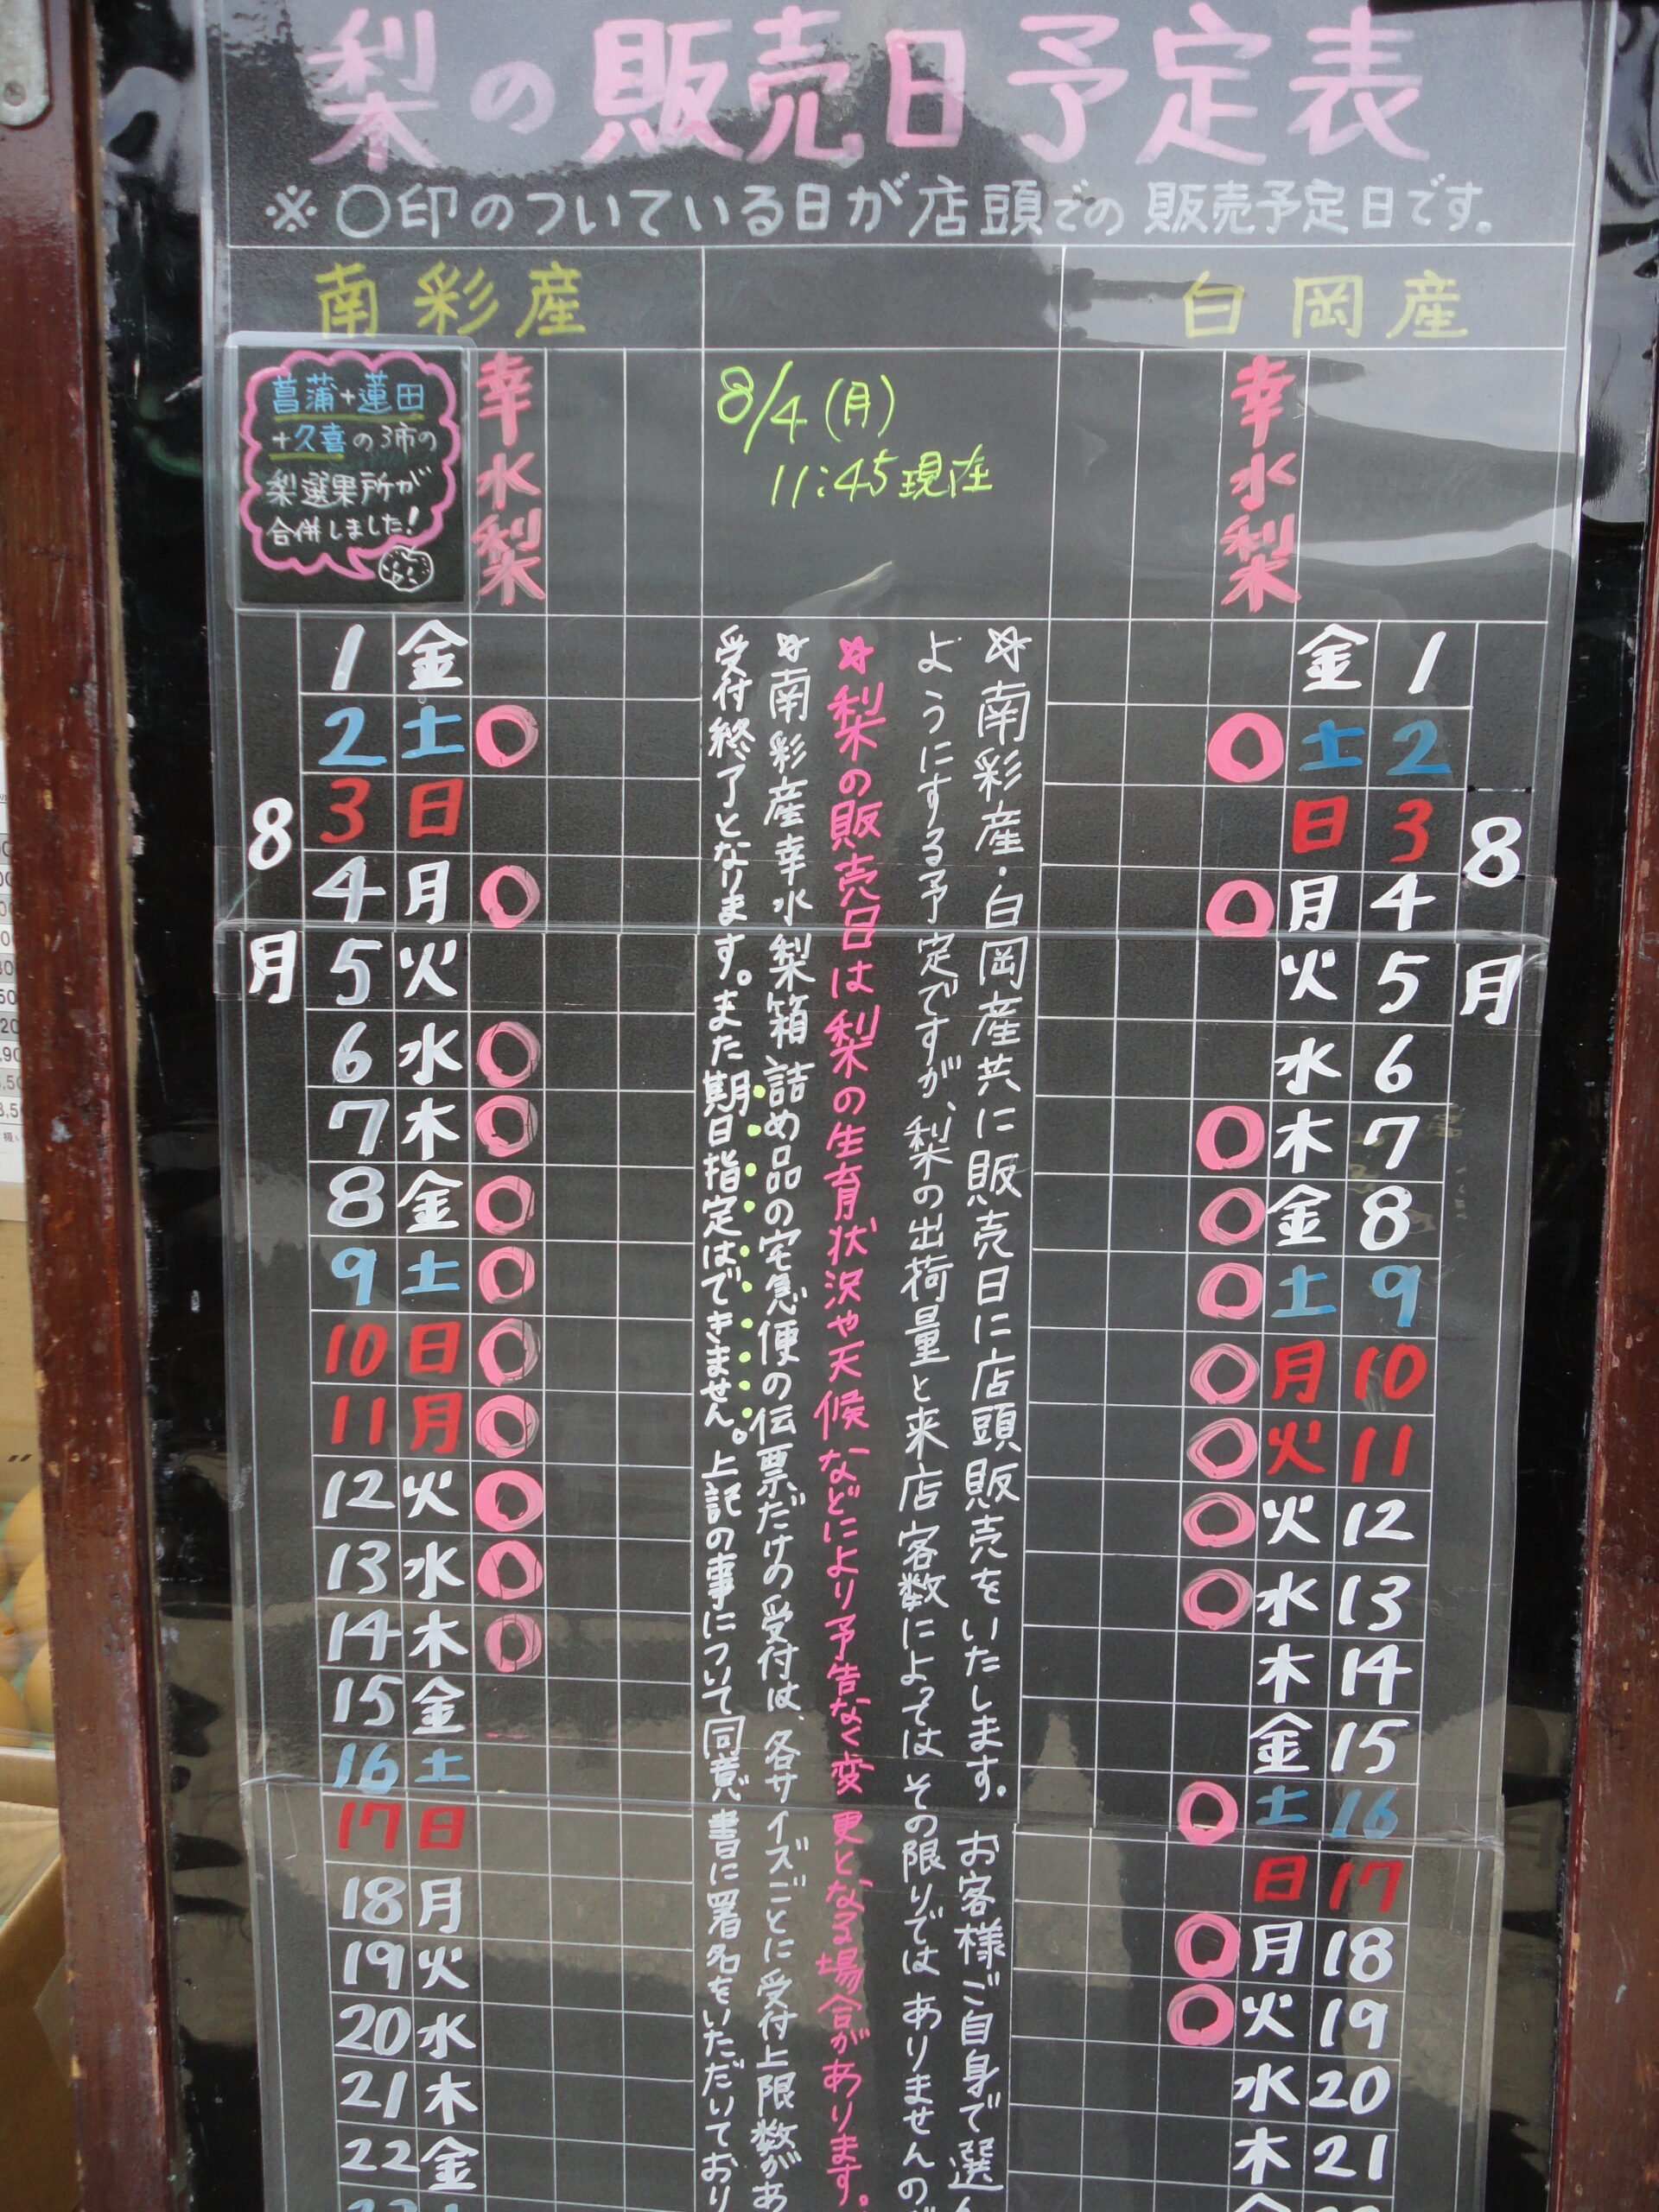 梨の販売日予定表
※〇印のついている日が店頭での販売予定日です。
南彩産
白岡産
菖蒲+蓮田
+久喜の3市の
梨選果所が
合併しました!
幸水梨
8/4(月)
11:45現在
幸水梨
8月
1 金
2 土 〇
3 日
4 月 〇
5 火
6 水 〇
7 木 〇
8 金 〇
9 土 〇
10 日 〇
11 月 〇
12 火 〇
13 水 〇
14 木 〇
15 金
16 土
17 日
18 月
19 火
20 水
21 木
22 金
☆南彩産・白岡産共に販売日に店頭販売をいたします。お客様ご自身で選
ようにする予定ですが、梨の出荷量と来店客数によってはその限りではありませんの
☆梨の販売日は梨の生育状況や天候などにより予告なく変更となる場合があります。
☆南彩産幸水梨箱詰め品の宅急便の伝票だけの受付は、各サイズごとに受付上限数があ
受付終了となります。また期日指定はできません。上記の事について同意書に署名をいただいており
8月
金 1
〇 土 2
日 3
〇 月 4
火 5
水 6
〇 木 7
〇 金 8
〇 土 9
〇 月 10
〇 火 11
〇 火 12
〇 水 13
木 14
金 15
〇 土 16
日 17
〇 月 18
〇 火 19
水 20
木 21